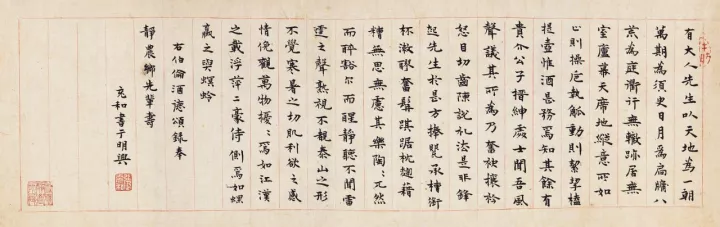 有大人先生以天地為一朝
萬期為須臾日月為扃牖八
荒為庭衢行無轍跡居無
室廬幕天席地縱意所如
止則操卮執觚動則挈榼
提壺惟酒是務焉知其餘有
貴介公子搢紳處士聞吾風
聲議其所為乃奮袂攘衿
怒目切齒陳說礼法是非鋒
起先生於是方捧甖承槽銜
杯漱醪奮髯踑踞枕麴藉
糟無思無慮其樂陶〻兀然
而醉豁尔而醒靜聽不聞雷
霆之聲熟視不覩泰山之形
不覺寒暑之切肌利欲之感
情俯觀萬物擾〻焉如江漢
之載浮萍二豪侍側焉如蜾
蠃之與螟蛉
右伯倫酒德頌錄奉
靜農鄉先輩壽
充和書于明